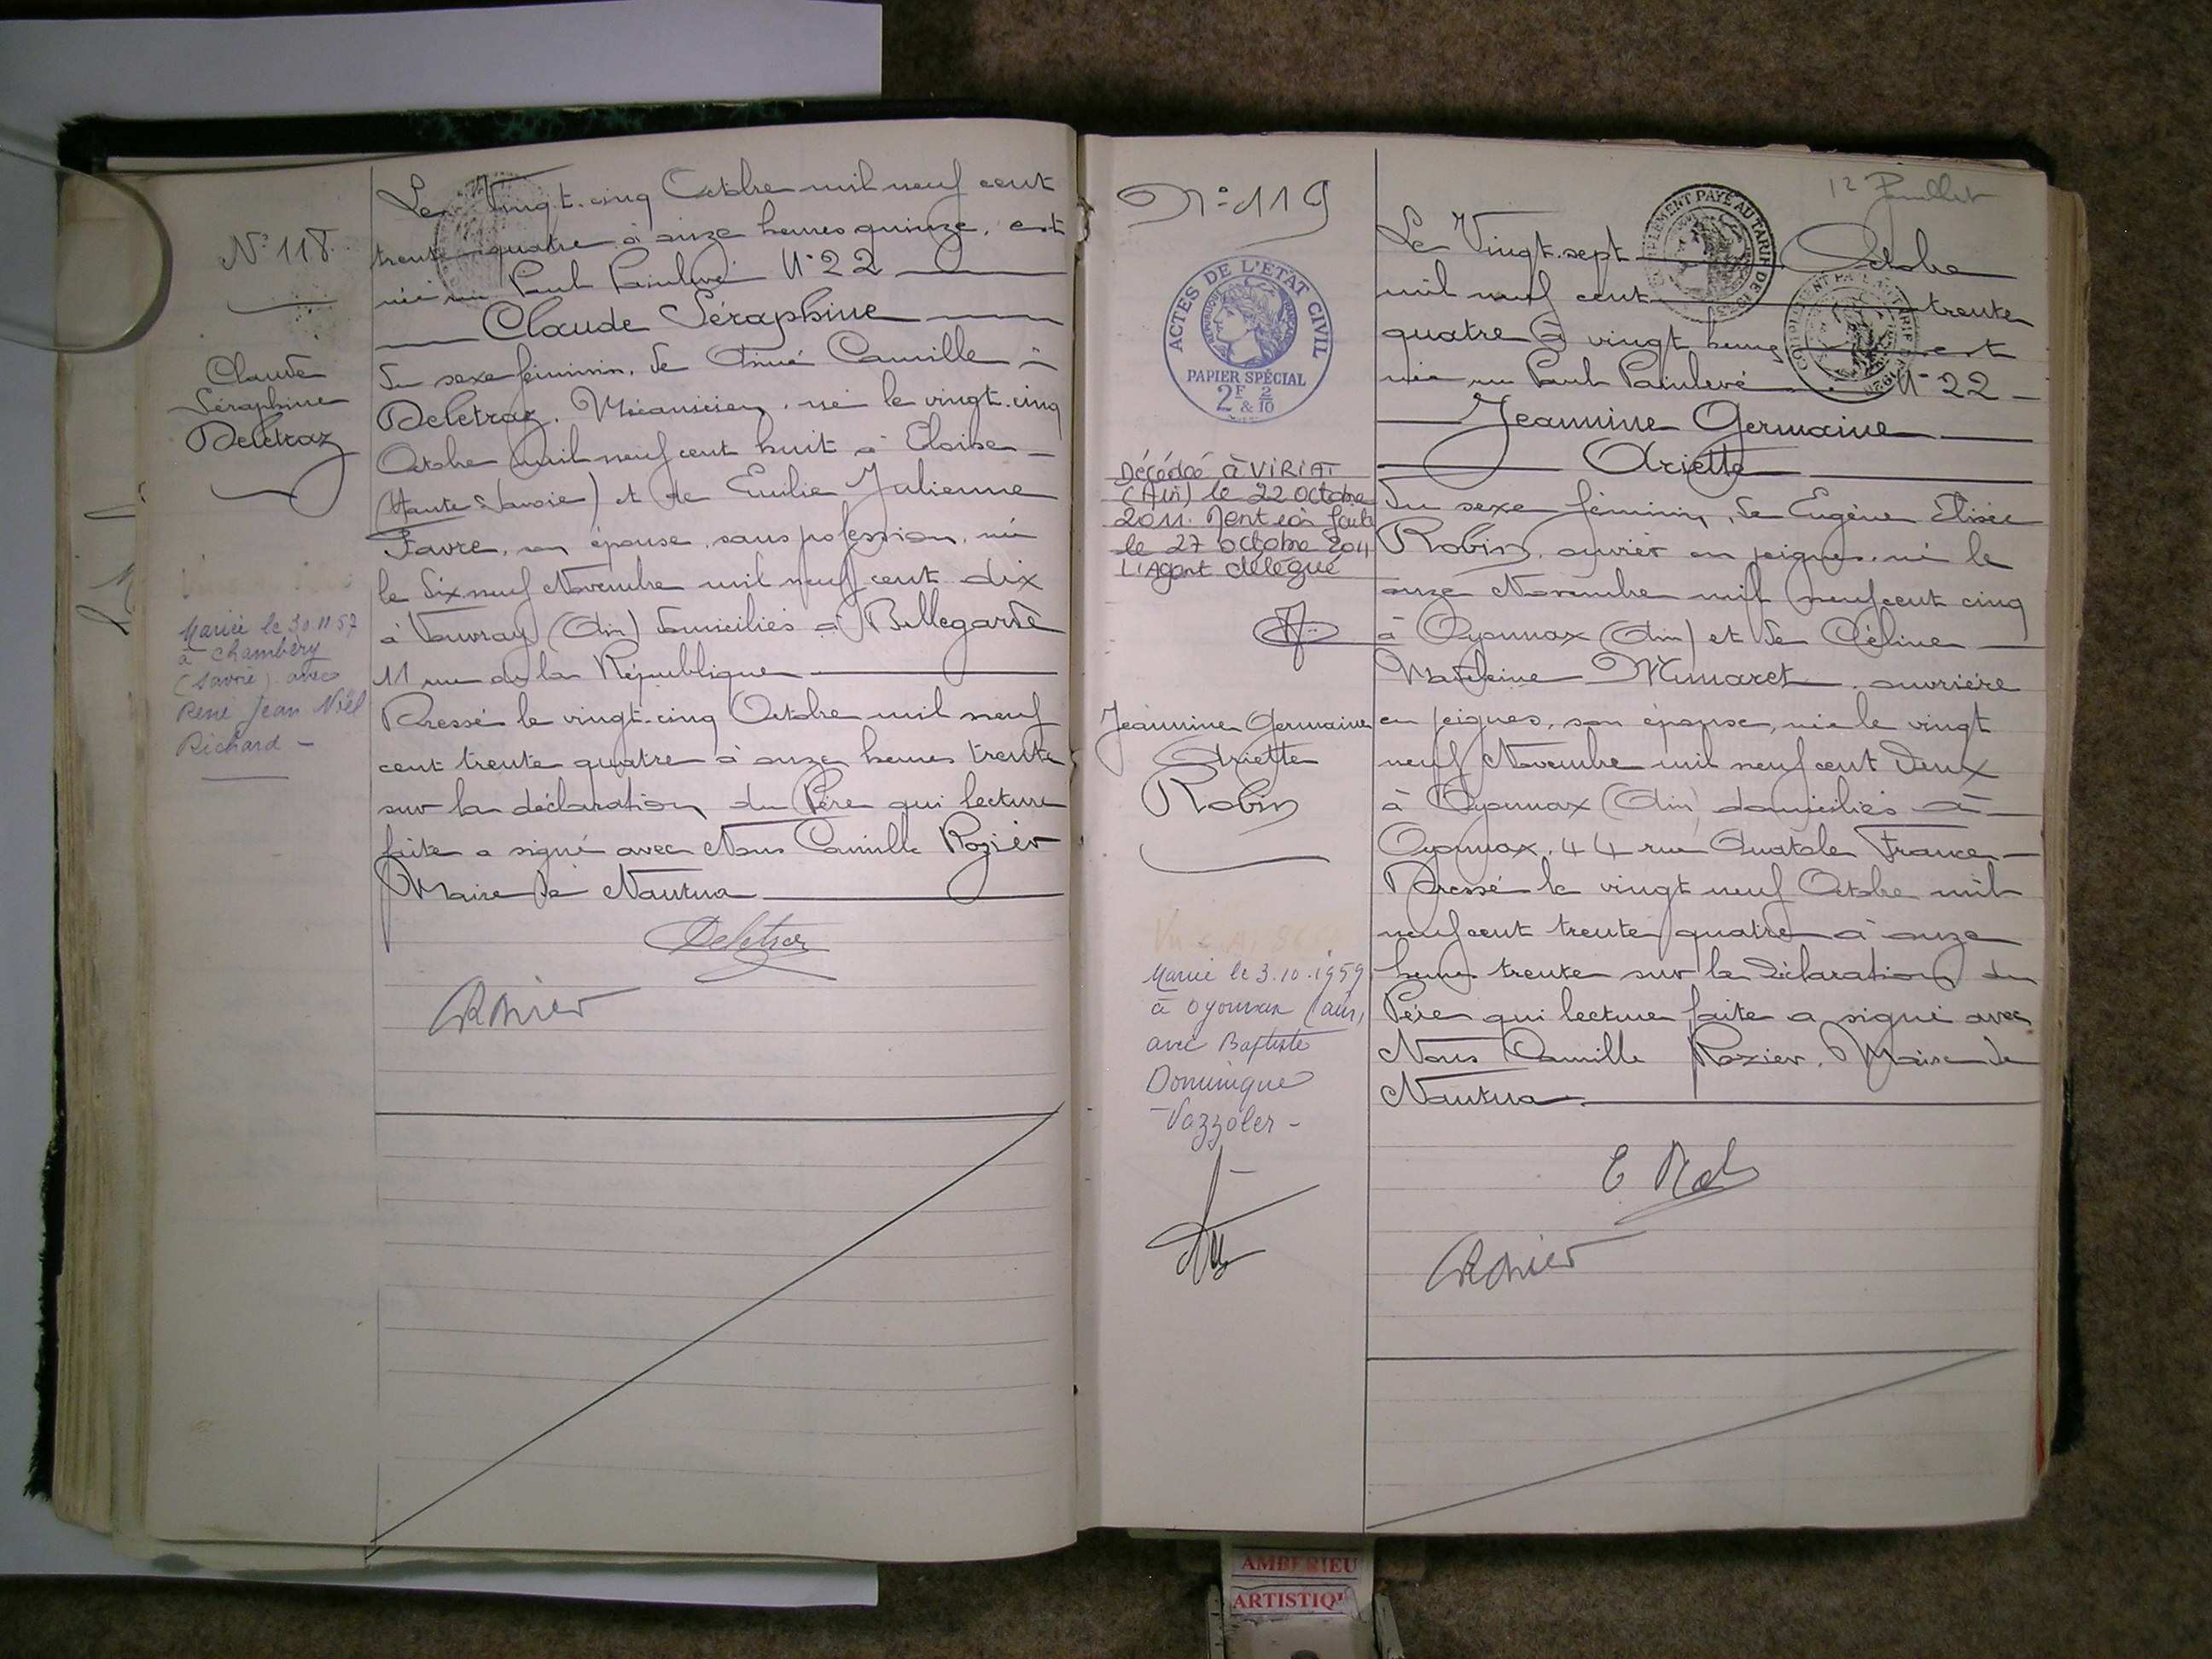 N° 118.
Claude
Séraphine
Deletraz
Mariée le 30.11.57
à Chambéry
(Savoie) avec
René Jean Noël
Richard -
Le Vingt-cinq Octobre mil neuf cent
trente-quatre à onze heures quinze, est
née rue Paul Painlevé N° 22
Claude Séraphine
du sexe féminin, de Aimé Camille
Deletraz, Mécanicien, né le vingt-cinq
Octobre mil neuf cent huit à Eloise
(Haute-Savoie) et de Emilie Julienne
Favre, son épouse, sans profession, née
le dix neuf Novembre mil neuf cent dix
à Vouvray (Ain) domiciliés à Bellegarde
11 rue de la République
Dressé le vingt-cinq Octobre mil neuf
cent trente quatre à onze heures trente
sur la déclaration du Père qui lecture
faite a signé avec Nous Camille Rozier
Maire de Nantua
Deletraz
CRozier
N° 119
ACTES DE L'ETAT CIVIL
REPUBLIQUE FRANÇAISE
PAPIER SPÉCIAL
2F & 2/10
Décédée à VIRIAT
(Ain) le 22 octobre
2011. Mention faite
le 27 octobre 2011
L'Agent délégué
Jeannine Germaine
Arlette
Robin
Mariée le 3.10.1959
à Oyonnax (Ain)
avec Baptiste
Dominique
- Vazzoler -
12 Feuillet
COMPLEMENT PAYÉ AU TARIF DE
COMPLEMENT PAYÉ AU TARIF DE
Le Vingt-sept Octobre
mil neuf cent trente
quatre à vingt heures est
née rue Paul Painlevé N° 22
Jeannine Germaine
Arlette
du sexe féminin, de Eugène Elisée
Robin, ouvrier en peignes, né le
onze Novembre mil neuf cent cinq
à Oyonnax (Ain) et de Céline
Madeleine Munaret, ouvrière
en peignes, son épouse, née le vingt
neuf Novembre mil neuf cent deux
à Oyonnax (Ain) domiciliés à
Oyonnax, 44 rue Anatole France
Dressé le vingt neuf Octobre mil
neuf cent trente quatre à onze
heures trente sur la déclaration du
Père qui lecture faite a signé avec
Nous Camille Rozier, Maire de
Nantua
E Rob
CRozier
AMBERIEU
ARTISTIQ